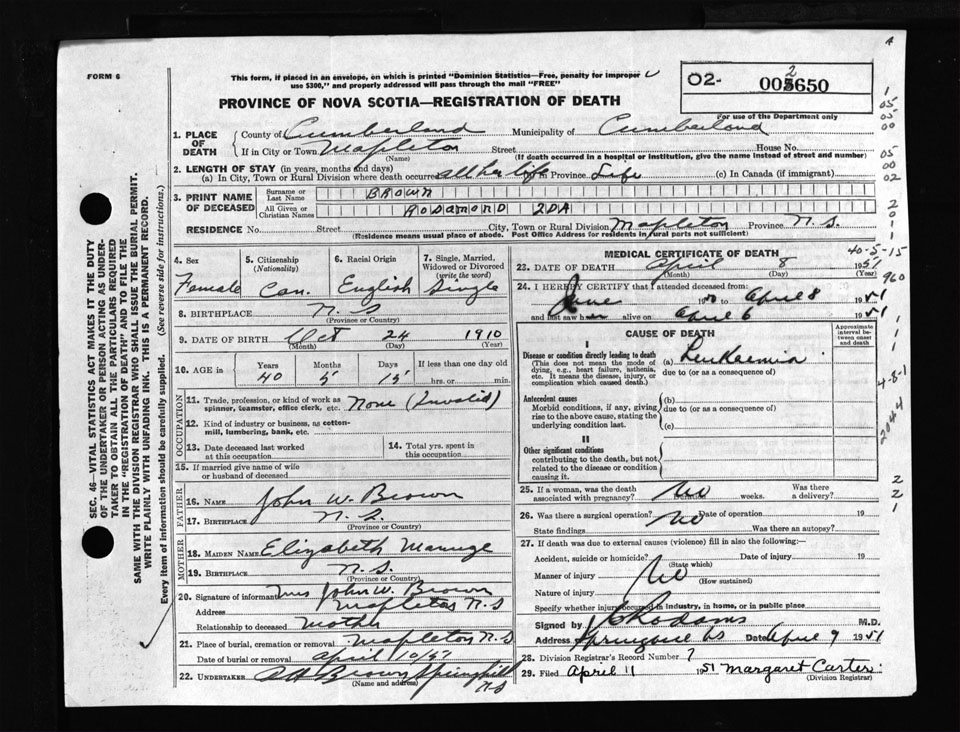 FORM 6
This form, if placed in an envelope, on which is printed "Dominion Statistics—Free, penalty for improper
use $300," and properly addressed will pass through the mail "FREE"
PROVINCE OF NOVA SCOTIA—REGISTRATION OF DEATH
02-
2
005650
For use of the Department only
1. PLACE OF DEATH
County of Cumberland Municipality of Cumberland
If in City or Town Mapleton Street House No.
(Name) (If death occurred in a hospital or institution, give the name instead of street and number)
2. LENGTH OF STAY (in years, months and days)
(a) In City, Town or Rural Division where death occurred all her life Province Life (c) In Canada (if immigrant)
3. PRINT NAME OF DECEASED
Surname or Last Name BROWN
All Given or Christian Names ROSAMOND IDA
RESIDENCE No. Street City, Town or Rural Division Mapleton Province N.S.
(Residence means usual place of abode. Post Office Address for residents in rural parts not sufficient)
4. Sex
Female
5. Citizenship
(Nationality)
Can.
6. Racial Origin
English
7. Single, Married, Widowed or Divorced
(write the word)
Single
8. BIRTHPLACE N.S
(Province or Country)
9. DATE OF BIRTH Oct 24 1910
(Month) (Day) (Year)
10. AGE in Years Months Days If less than one day old
40 5 15 hrs. or min.
OCCUPATION
11. Trade, profession, or kind of work as
spinner, teamster, office clerk, etc. None (Invalid)
12. Kind of industry or business, as cotton-
mill, lumbering, bank, etc.
13. Date deceased last worked
at this occupation
14. Total yrs. spent in
this occupation
15. If married give name of wife
or husband of deceased
FATHER
16. NAME John W. Brown
17. BIRTHPLACE N.S.
(Province or Country)
MOTHER
18. MAIDEN NAME Elizabeth
19. BIRTHPLACE N.S.
(Province or Country)
20. Signature of informant Mrs John W. Brown
Address Mapleton N.S
Relationship to deceased Mother
21. Place of burial, cremation or removal Mapleton N.S
Date of burial or removal April 10/51
22. UNDERTAKER Brown Springhill
(Name and address) N.S
MEDICAL CERTIFICATE OF DEATH
40-5-15
23. DATE OF DEATH April 8 1951
(Month) (Day)
24. I HEREBY CERTIFY that I attended deceased from:
June 1950 to April 8 1951
and last saw h alive on April 6 1951
CAUSE OF DEATH
Approximate interval between onset and death
I
Disease or condition directly leading to death
(This does not mean the mode of
dying, e.g., heart failure, asthenia,
etc. It means the disease, injury, or
complication which caused death.)
(a) Leukaemia
due to (or as a consequence of)
Antecedent causes
Morbid conditions, if any, giving
rise to the above cause, stating the
underlying condition last.
(b)
due to (or as a consequence of)
(c)
II
Other significant conditions
contributing to the death, but not
related to the disease or condition
causing it.
25. If a woman, was the death Was there
associated with pregnancy? No weeks. a delivery?
26. Was there a surgical operation? No Date of operation 19
State findings Was there an autopsy?
27. If death was due to external causes (violence) fill in also the following:—
Accident, suicide or homicide? Date of injury 19
(State which)
Manner of injury No
(How sustained)
Nature of injury
Specify whether injury occurred in industry, in home, or in public place
Signed by M.D.
Address Springhill NS Date April 9 1951
28. Division Registrar's Record Number 7
29. Filed April 11 1951 Margaret Carter
(Division Registrar)
1
05
05
00
05
00
02
2
0
1
1
960
4-8-1
2044
2
2
1
SEC. 46—VITAL STATISTICS ACT MAKES IT THE DUTY
OF THE UNDERTAKER OR PERSON ACTING AS UNDER-
TAKER TO OBTAIN ALL THE PARTICULARS REQUIRED
IN THE "REGISTRATION OF DEATH" AND TO FILE THE
SAME WITH THE DIVISION REGISTRAR WHO SHALL ISSUE THE BURIAL PERMIT.
WRITE PLAINLY WITH UNFADING INK. THIS IS A PERMANENT RECORD.
Every item of information should be carefully supplied. (See reverse side for instructions.)